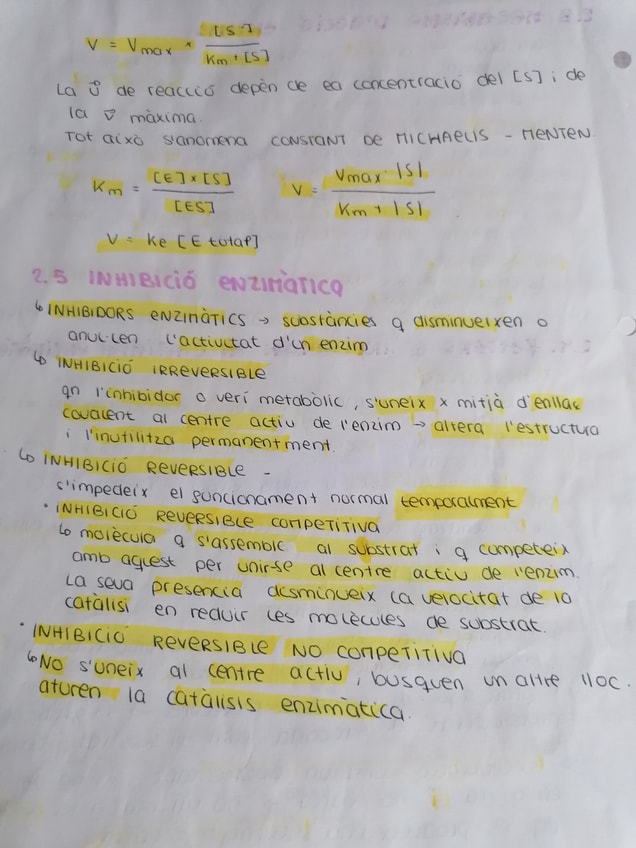 V = Vmax * [S]
Km + [S]
La v̄ de reacció depèn de la concentració del [S] i de
la v̄ màxima.
Tot això s'anomena CONSTANT DE MICHAELIS - MENTEN
Km = [E] x [S]
[ES]
V = Vmax · |S|
Km + |S|
V = Ke [E total]
2.5 INHIBICIÓ ENZIMÀTICA
↳ INHIBIDORS ENZIMÀTICS → substàncies q disminueixen o
anul·len l'activitat d'un enzim
↳ INHIBICIÓ IRREVERSIBLE
qn l'inhibidor o verí metabòlic, s'uneix x mitjà d'enllaç
covalent al centre actiu de l'enzim → altera l'estructura
i l'inutilitza permanentment.
↳ INHIBICIÓ REVERSIBLE -
s'impedeix el funcionament normal temporalment
· INHIBICIÓ REVERSIBLE COMPETITIVA
↳ molècula q s'assembla al substrat i q competeix
amb aquest per unir-se al centre actiu de l'enzim.
La seva presencia disminueix la velocitat de la
catàlisi en reduir les molècules de substrat.
· INHIBICIÓ REVERSIBLE NO COMPETITIVA
↳ No s'uneix al centre actiu, busquen un altre lloc.
aturen la catàlisis enzimàtica.